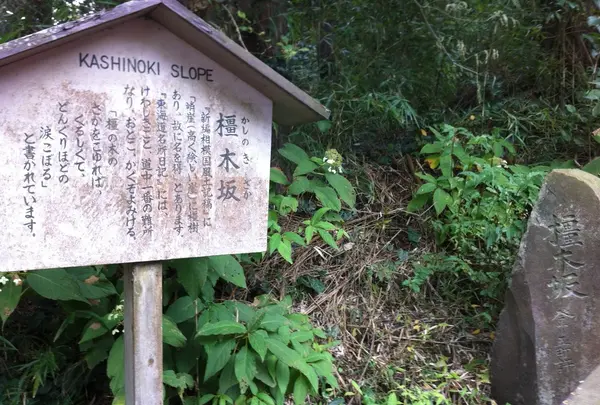 KASHINOKI SLOPE
かしのき さか
橿木坂
『新編相模国風土記稿』に
「峭崖（高く険しい崖）に橿樹
あり、故に名を得」とあります。
『東海道名所日記』には、
けわしきこと、道中一番の難所
なり。おとこ、かくぞよみける。
「橿の木の
さかをこゆれば、
くるしくて、
どんぐりほどの
涙こぼる」
と書かれています。
橿木坂